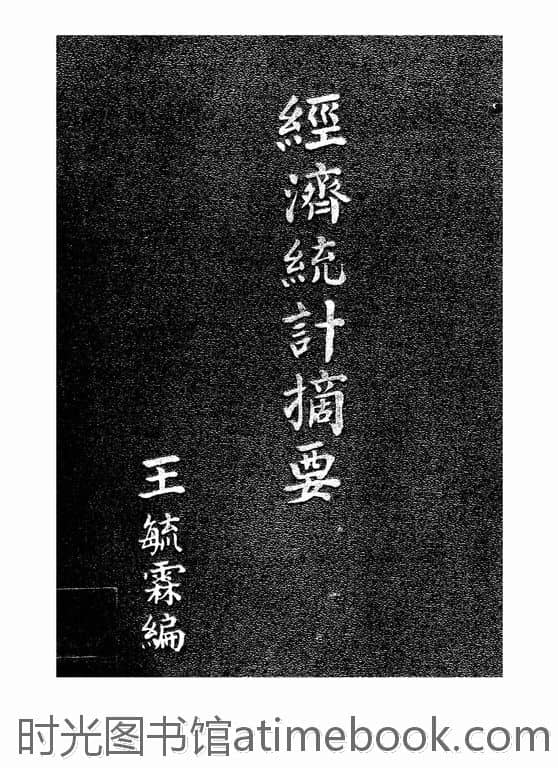 經濟統計摘要
王毓霖編
时光图书馆atimebook.com